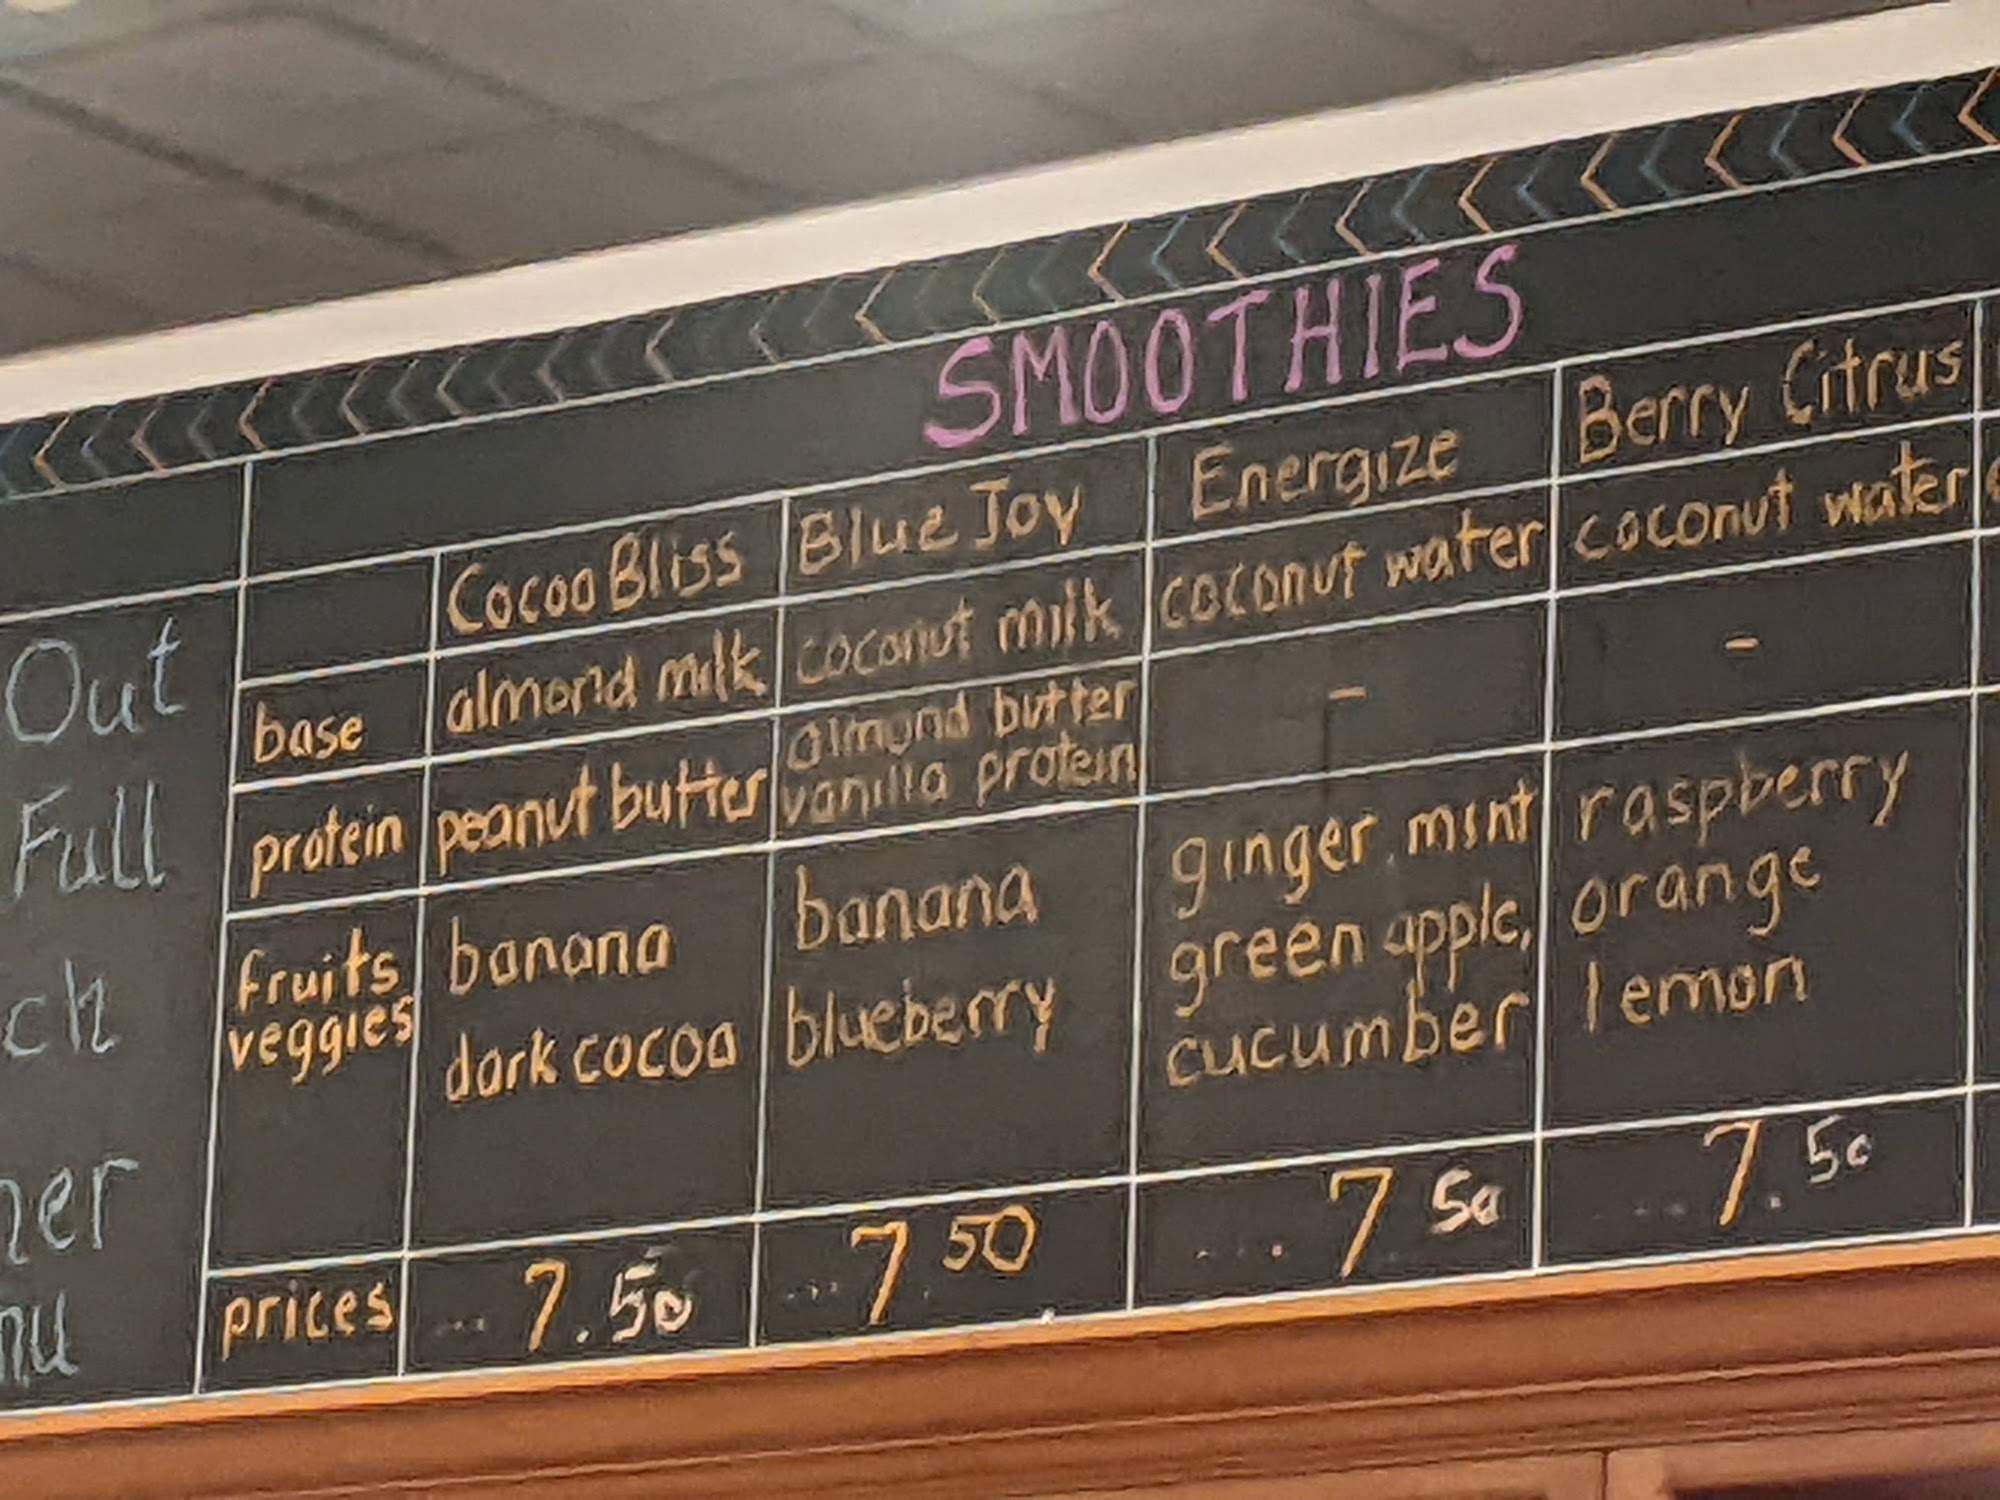 SMOOTHIES
Cocoa Bliss Blue Joy Energize Berry Citrus
base almond milk coconut milk coconut water coconut water
protein peanut butter almond butter - -
vanilla protein
fruits banana banana ginger, mint raspberry
veggies dark cocoa blueberry green apple, orange
cucumber lemon
prices 7.50 7.50 7 50 7.50
Out
Full